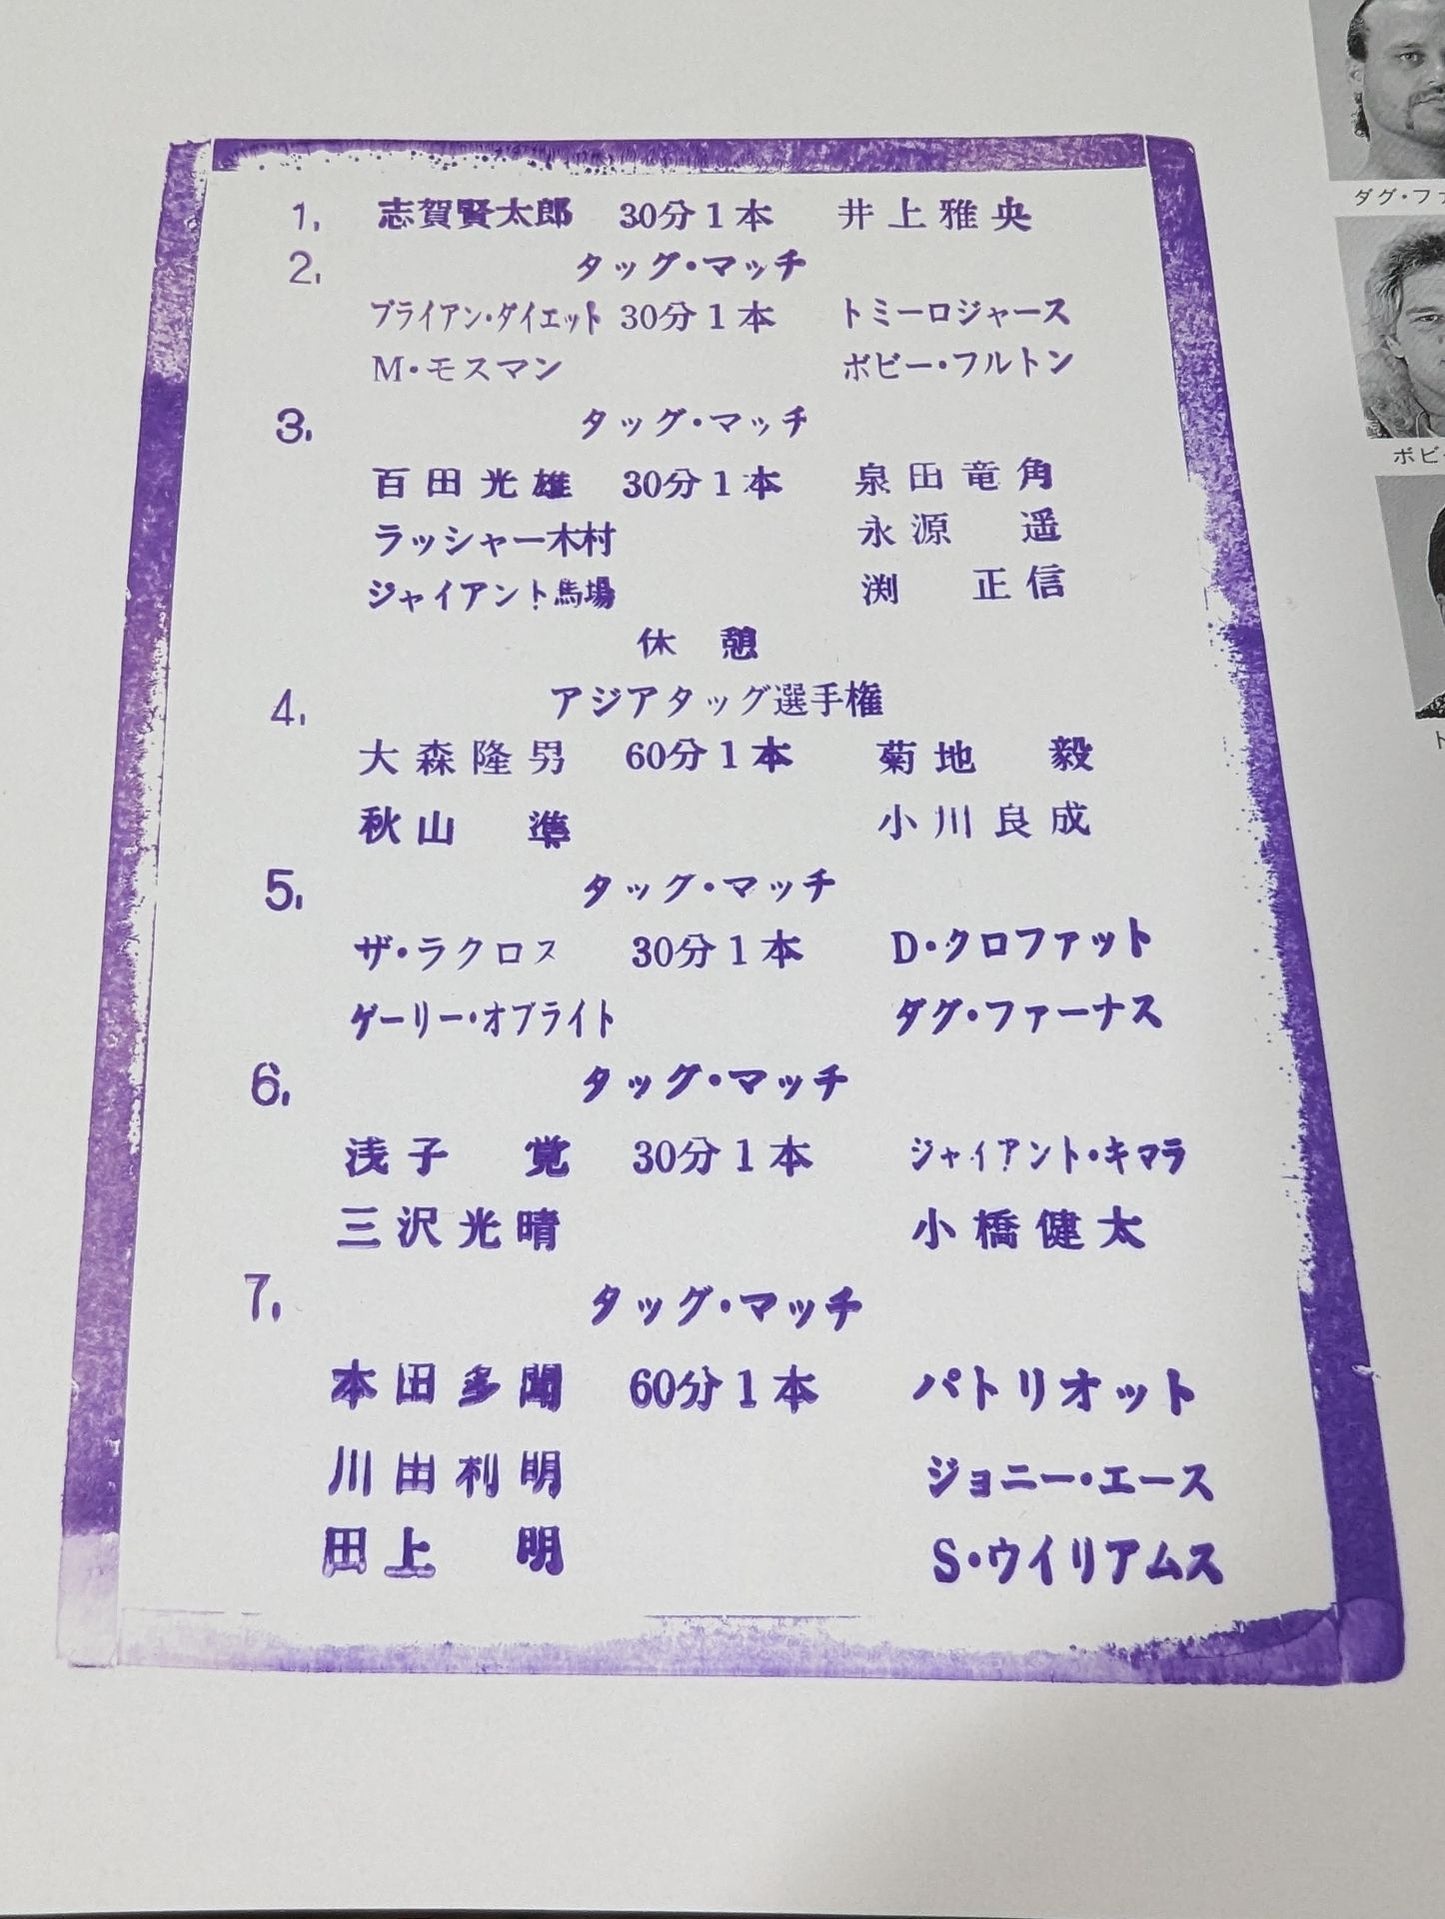 1. 志賀賢太郎 30分1本 井上雅央
2. タッグ・マッチ
ブライアン・ダイエット 30分1本 トミーロジャース
M・モスマン ボビー・フルトン
3. タッグ・マッチ
百田光雄 30分1本 泉田竜角
ラッシャー木村 永源 遥
ジャイアント馬場 渕 正信
休憩
4. アジアタッグ選手権
大森隆男 60分1本 菊地 毅
秋山 準 小川良成
5. タッグ・マッチ
ザ・ラクロス 30分1本 D・クロファット
ゲーリー・オブライト ダグ・ファーナス
6. タッグ・マッチ
浅子 覚 30分1本 ジャイアント・キマラ
三沢光晴 小橋健太
7. タッグ・マッチ
本田多聞 60分1本 パトリオット
川田利明 ジョニー・エース
田上 明 S・ウイリアムス
ダグ・フ
ボビ